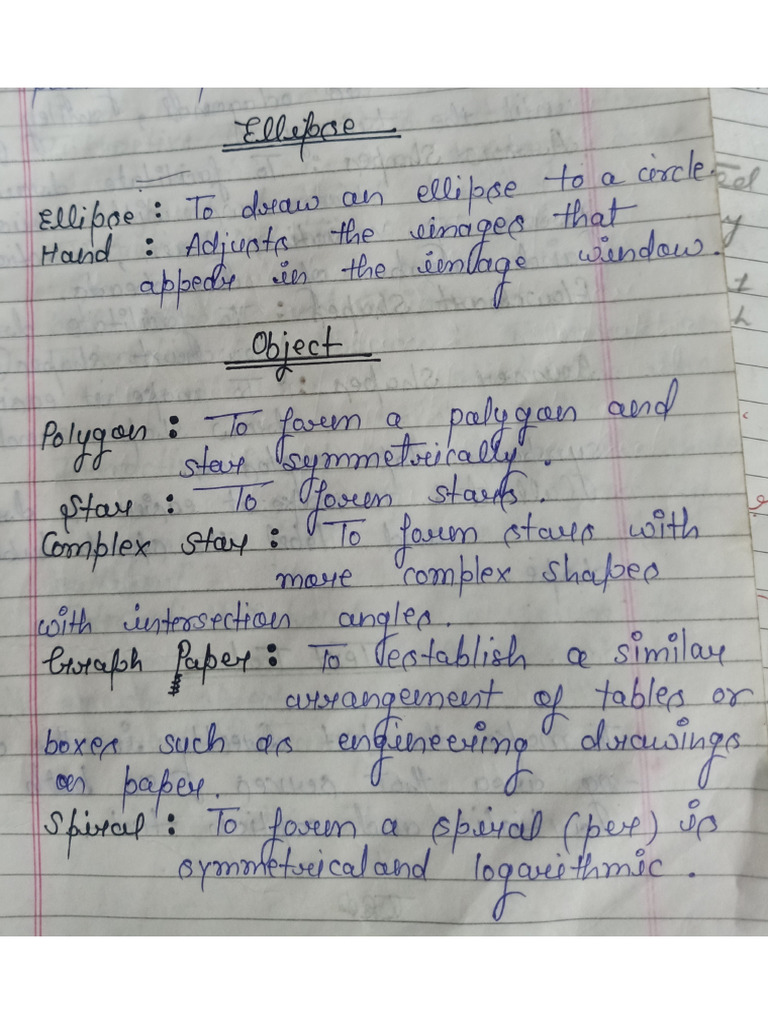 Ellipse
Ellipse : To draw an ellipse to a circle.
Hand : Adjusts the images that
appear in the image window.
Object
Polygon : To form a polygon and
star symmetrically.
Star : To form stars.
Complex star : To form stars with
more complex shapes
with intersection angles.
Graph Paper : To establish a similar
arrangement of tables or
boxes such as engineering drawings
on paper.
Spiral : To form a spiral (per) is
symmetrical and logarithmic.